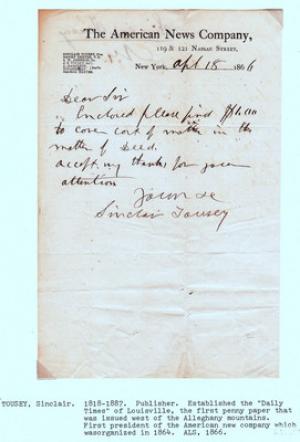 The American News Company,
119 & 121 Nassau Street,
New York, Apl 18 1866
Dear Sir
Enclosed please find
to cover cost of matter in the
matter of Deed.
accept my thanks for your
attention
Yours &c
Sinclair Tousey
TOUSEY, Sinclair. 1818-1887. Publisher. Established the "Daily
Times" of Louisville, the first penny paper that
was issued west of the Alleghany mountains.
First president of the American new company which
wasorganized in 1864. ALS, 1866.